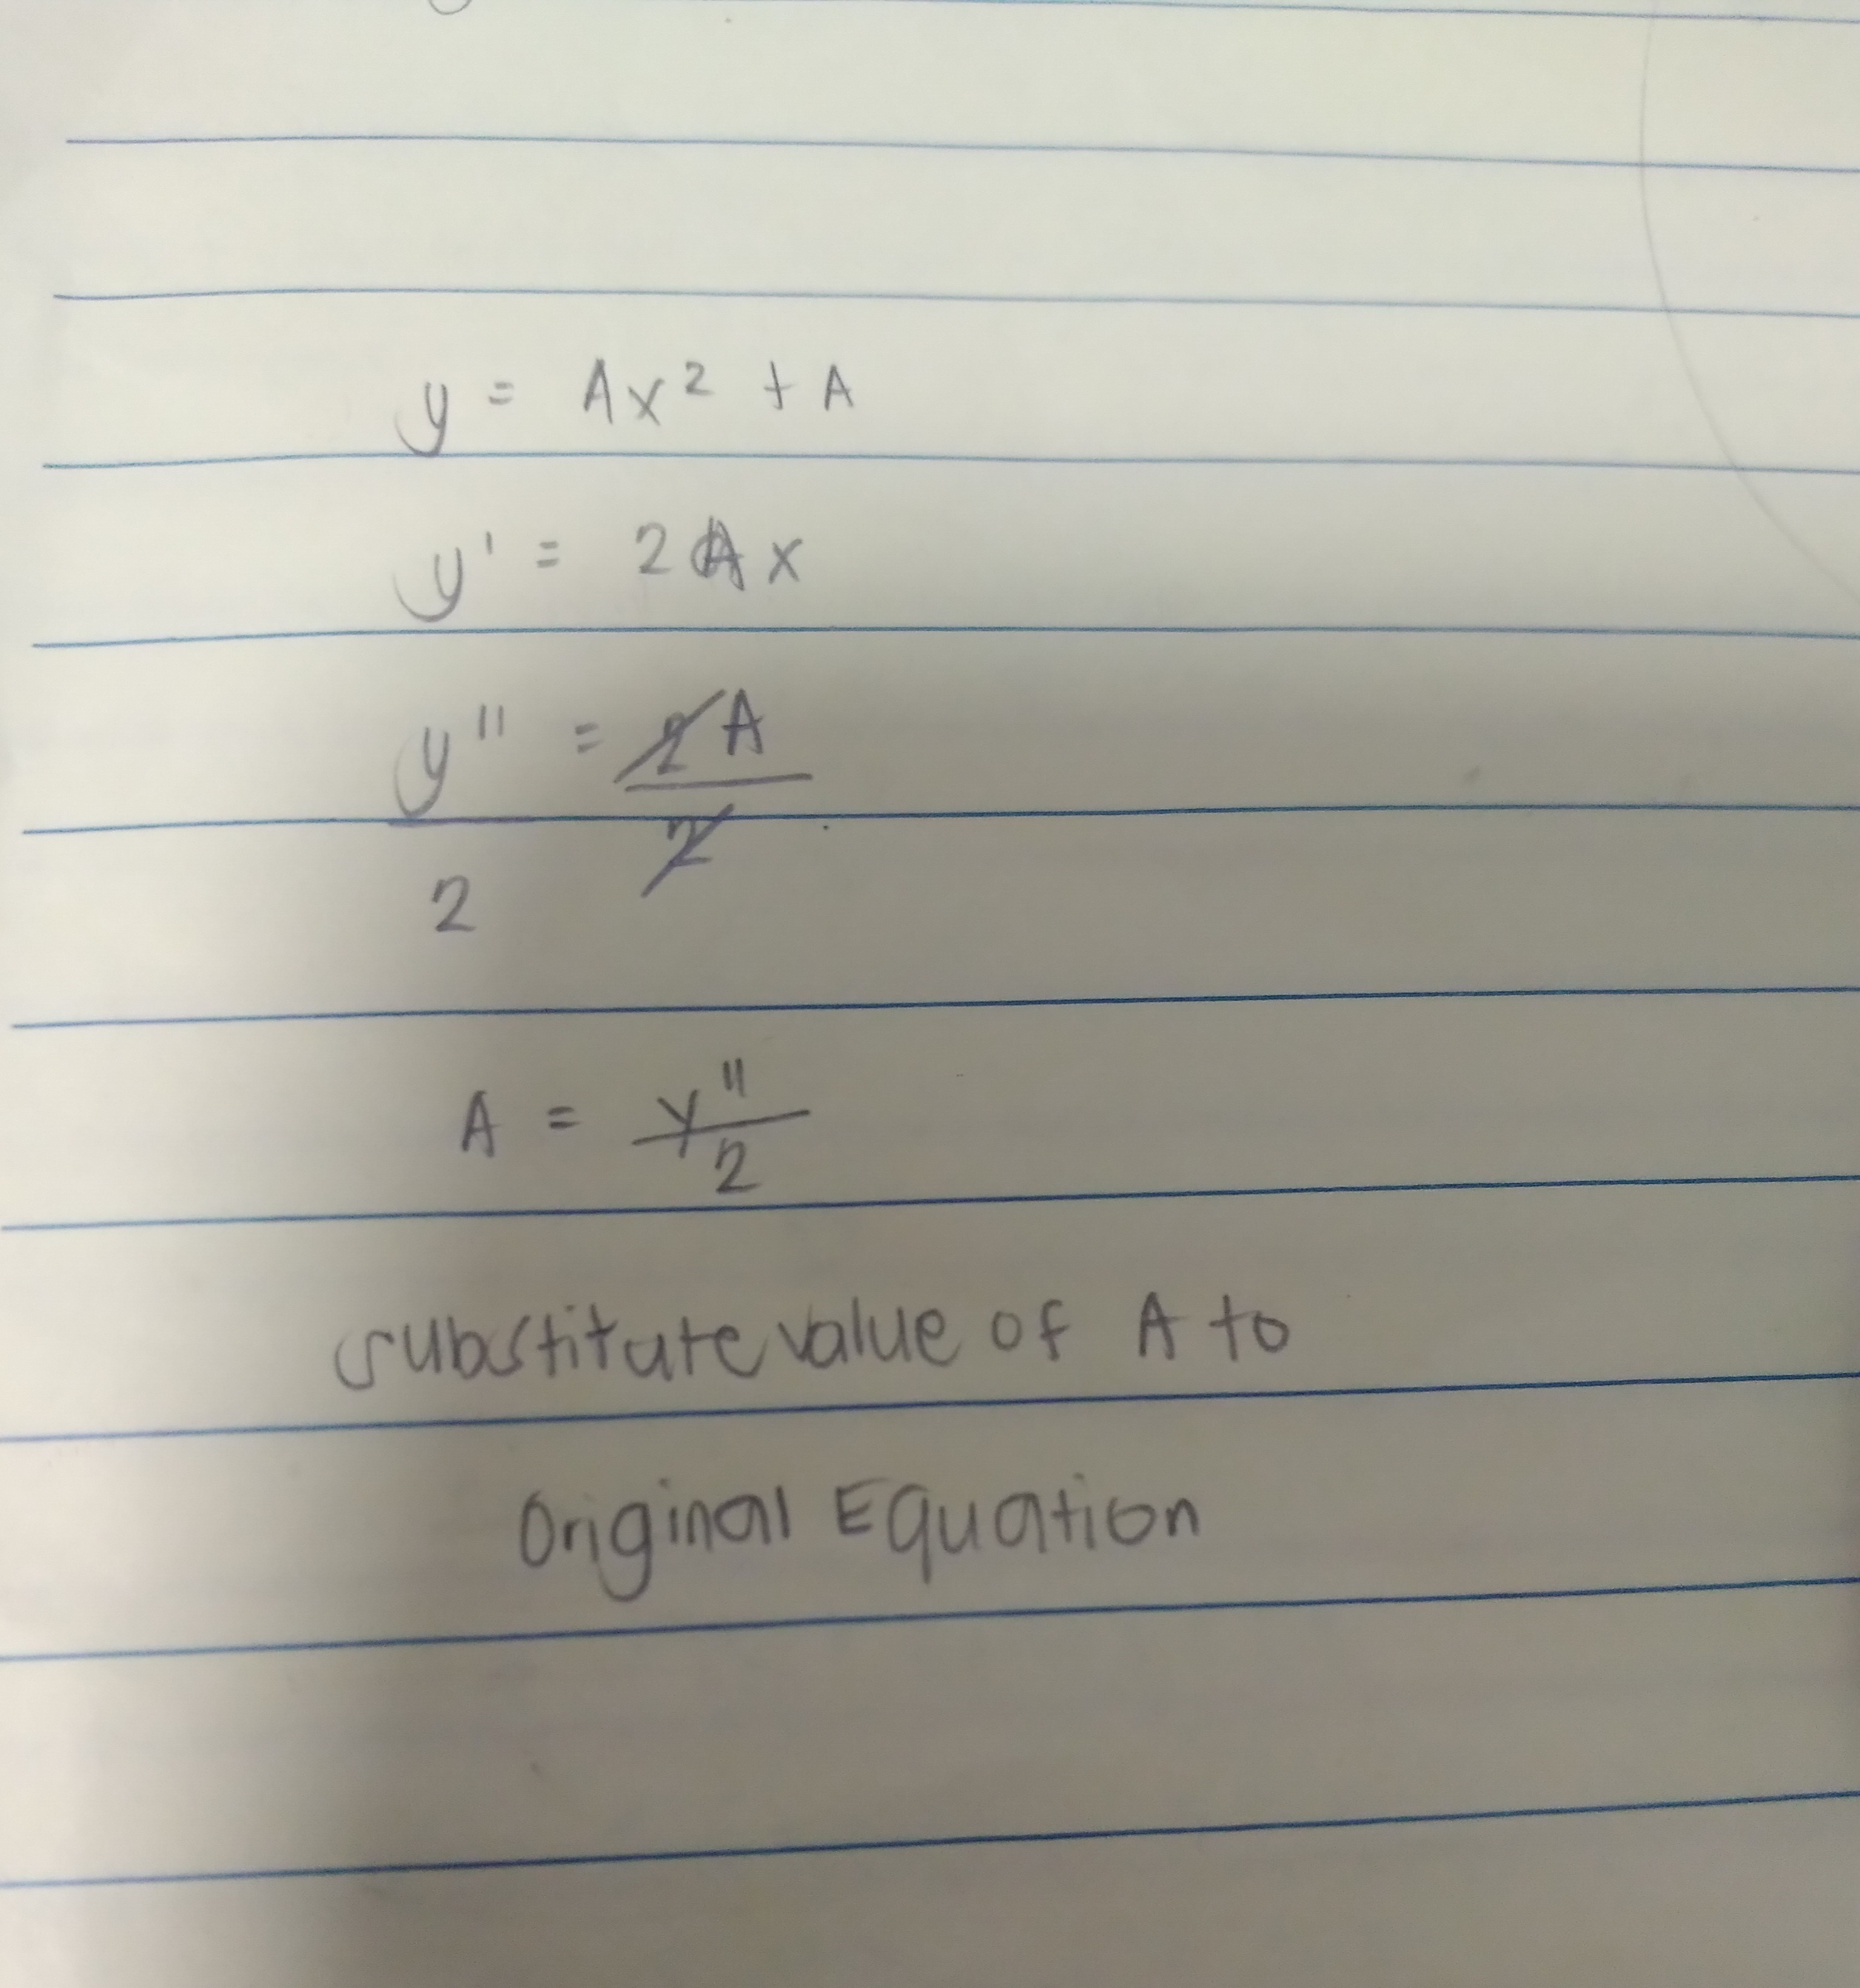 y = Ax² + A
y' = 2Ax
y'' = 2A
2 2
A = y''
2
substitute value of A to
Original Equation